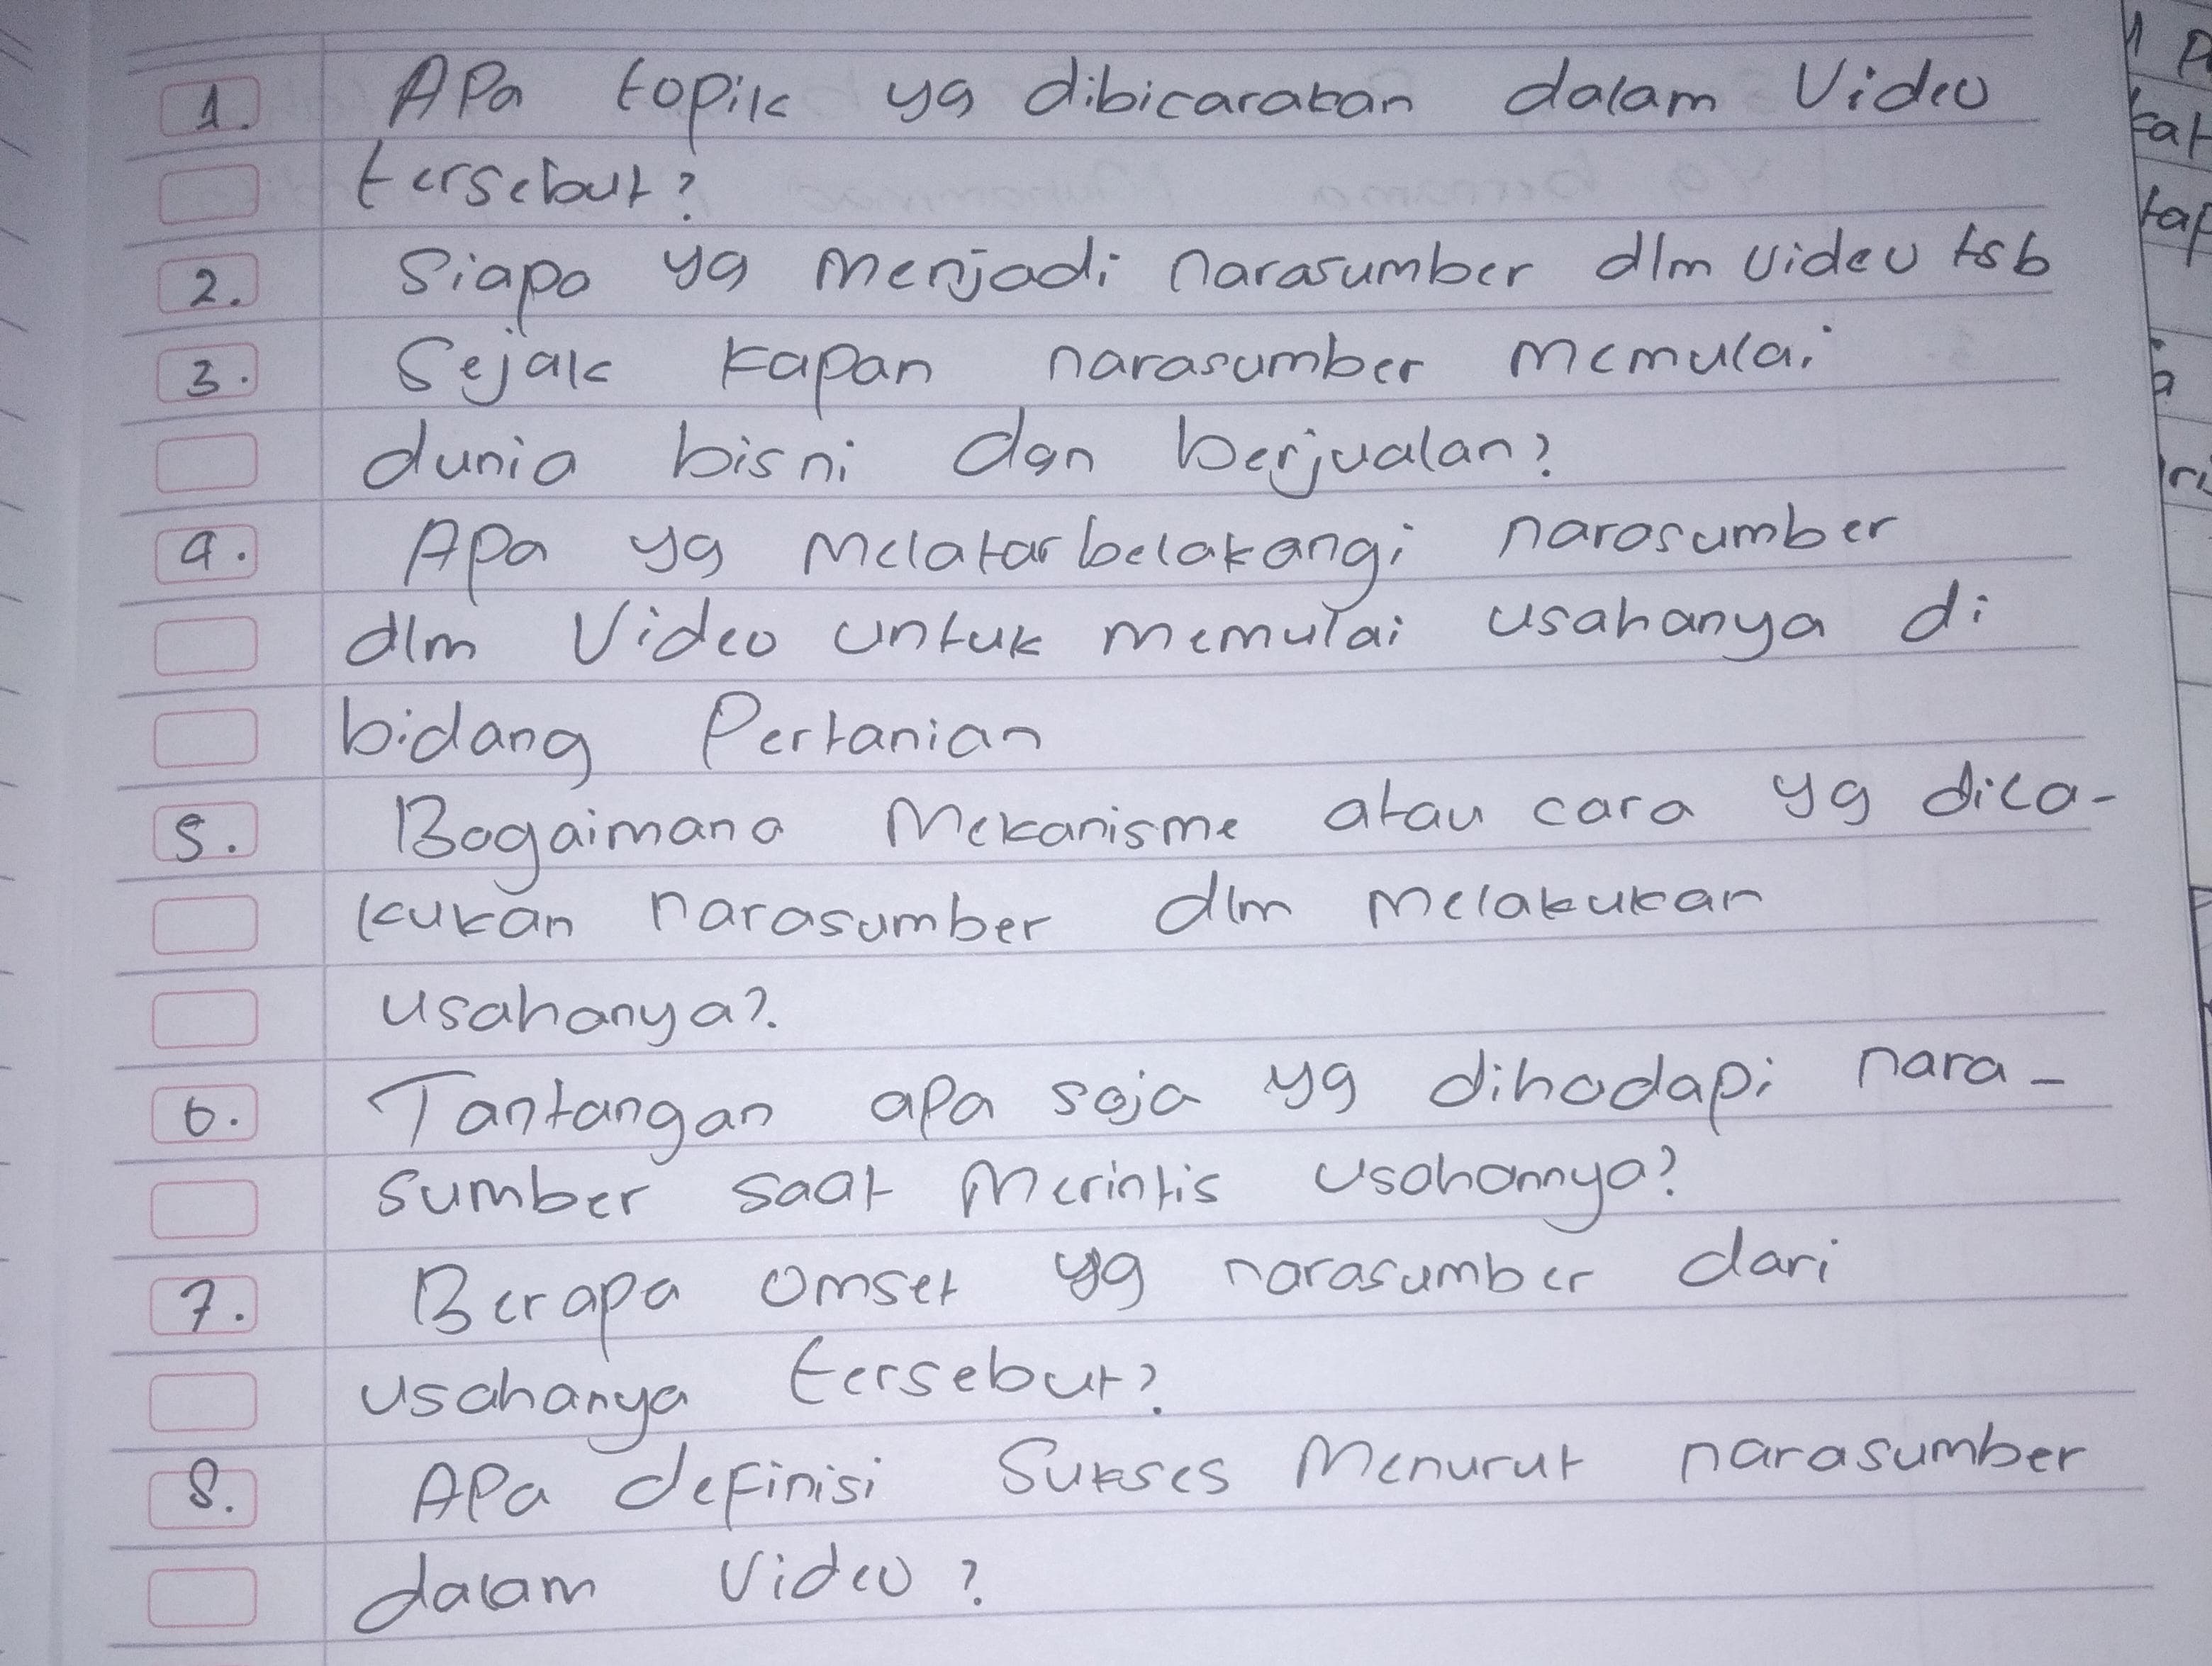 1. Apa topik yg dibicarakan dalam Video
tersebut?
2. Siapa yg menjadi narasumber dlm video tsb
3. Sejak kapan narasumber memulai
dunia bisni dan berjualan?
4. Apa yg melatarbelakangi narasumber
dlm Video untuk memulai usahanya di
bidang Pertanian
5. Bagaimana Mekanisme atau cara yg dila-
kukan narasumber dlm melakukan
usahanya?.
6. Tantangan apa saja yg dihadapi nara-
sumber saat Merintis usahannya?
7. Berapa omset yg narasumber dari
usahanya tersebut?
8. Apa definisi Sukses Menurut narasumber
dalam Video?